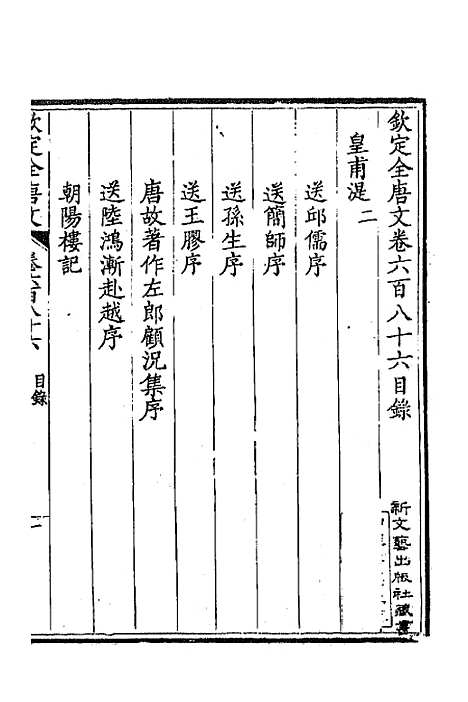 欽定全唐文卷六百八十六目錄
皇甫湜二
送邱儒序
送簡師序
送孫生序
送王膠序
唐故著作左郎顧況集序
送陸鴻漸赴越序
朝陽樓記
欽定全唐文 卷六百八十六 目錄 一
新文藝出版社藏書